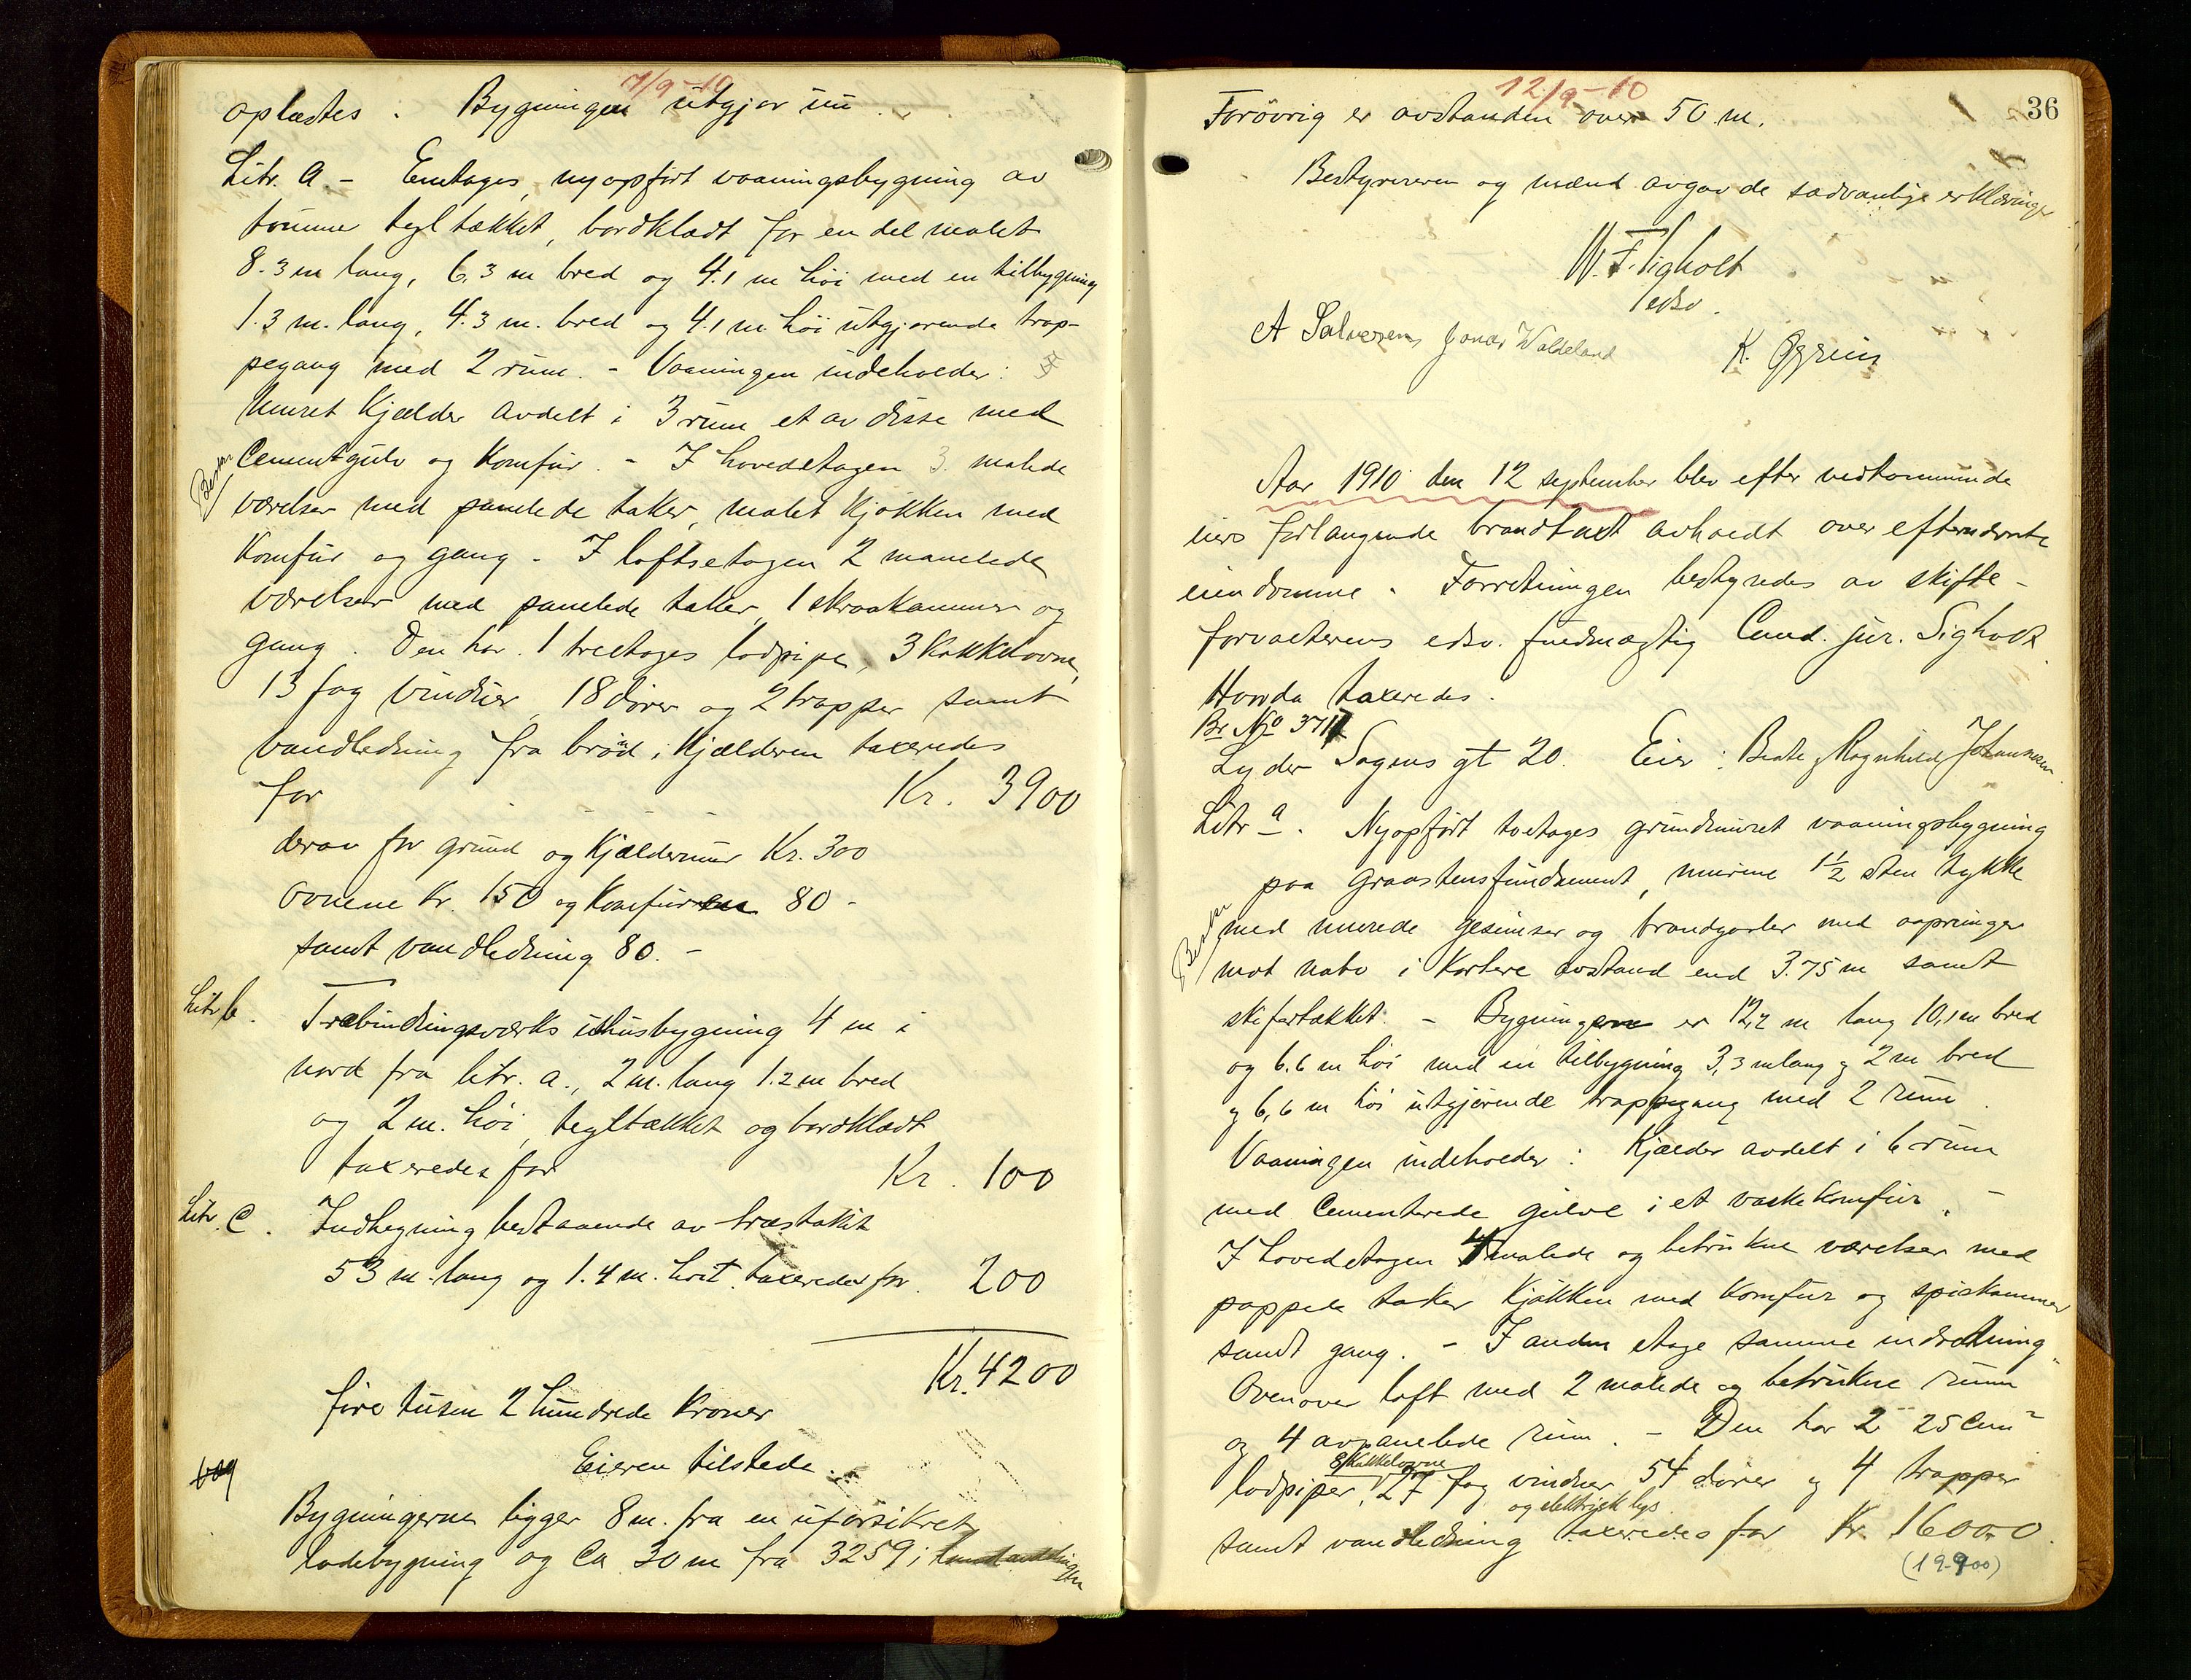 7/9-10
oplæstes. Bygningen utgjør nu
Litr. a. - Enetages, nyopført vaaningsbygning av
tømmer tegltækket, bordklædt for en del malet
8.3 m lang, 6.3 m bred og 4.1 m høi med en tilbygning
1.3 m. lang, 4.3 m. bred og 4.1 m høi utgjørende trap-
pegang med 2 rum. - Vaaningen indeholder:
Muret kjælder avdelt i 3 rum et av disse med
Cementgulv og komfur. - I hovedetagen 3 malede
værelser med panelede taker, malet kjøkken med
Komfur og gang. - I loftsetagen 2 manelede
værelser med panelede taker, 1 skraakammer og
gang. Den har 1 treetages lodpipe, 3 kakkelovne,
13 fag vinduer, 18 dører og 2 trapper samt
vandledning fra brønd i kjælderen taxeredes
for Kr. 3900
derav for grund og kjældermur Kr. 300
ovnene Kr. 150 og komfuren 80 -
samt vandledning 80. -
Litr. b. Træbindingsværks uthusbygning 4 m i
nord fra litr. a., 2 m. lang 1.2 m bred
og 2 m. høi, tegltækket og bordklædt
taxeredes for Kr. 100
Litr. C. Indhegning bestaaende av træstakit
53 m. lang og 1.4 m. høit taxeredes for 200
Kr. 4200
fire tusen 2 hundrede kroner
Eieren tilstede.
Bygningerne ligger 8 m. fra en uforsikret
ladebygning og Ca 30 m fra 3259 i
12/9-10
36
Forøvrig er avstanden over 50 m.
Bestyreren og mænd avgav de sædvanlige erklæringer
W. F. Sigholt
edsv.
A Salvesen Jonas Waldeland K. Øgreid
Aar 1910 den 12 september blev efter vedkommende
eiers forlangende brandtaxt avholdt over efternævnte
eiendomme. Forretningen bestyredes av skifte-
forvalterens edsv. fuldmægtig Cand. jur. Sigholt
Hvorda taxeredes.
Br. No 3711
Lyder Sagens gt 20. Eier: Beate & Ragnhild Johannesen.
Litr a. Nyopført toetages grundmuret vaaningsbygning
paa graastensfundament, murene 1 1/2 sten tykke
med murede gesimser og brandgavler med
mot nabo i kortere avstand end 3.75 m samt
skifertækket. - Bygningen er 12,2 m lang 10,1 m bred
og 6.6 m høi med en tilbygning 3,3 m lang og 2 m bred
og 6,6 m høi utgjørende trappegang med 2 rum.
Vaaningen indeholder: Kjælder avdelt i 6 rum
med Cementerede gulve i et vaskekomfur. -
I hovedetagen 4 malede og betrukne værelser med
pappede taker kjøkken med komfur og spiskammer
samt gang. - I anden etage samme indredning
Ovenover loft med 2 malede og betrukne rum
og 4 avpanelede rum. - Den har 2 25 Cm2
lodpiper, 8 kakkelovne 27 fag vinduer 54 dører og 4 trapper
samt vandledning og elektrisk lys taxeredes for Kr. 16000.
(19-900)